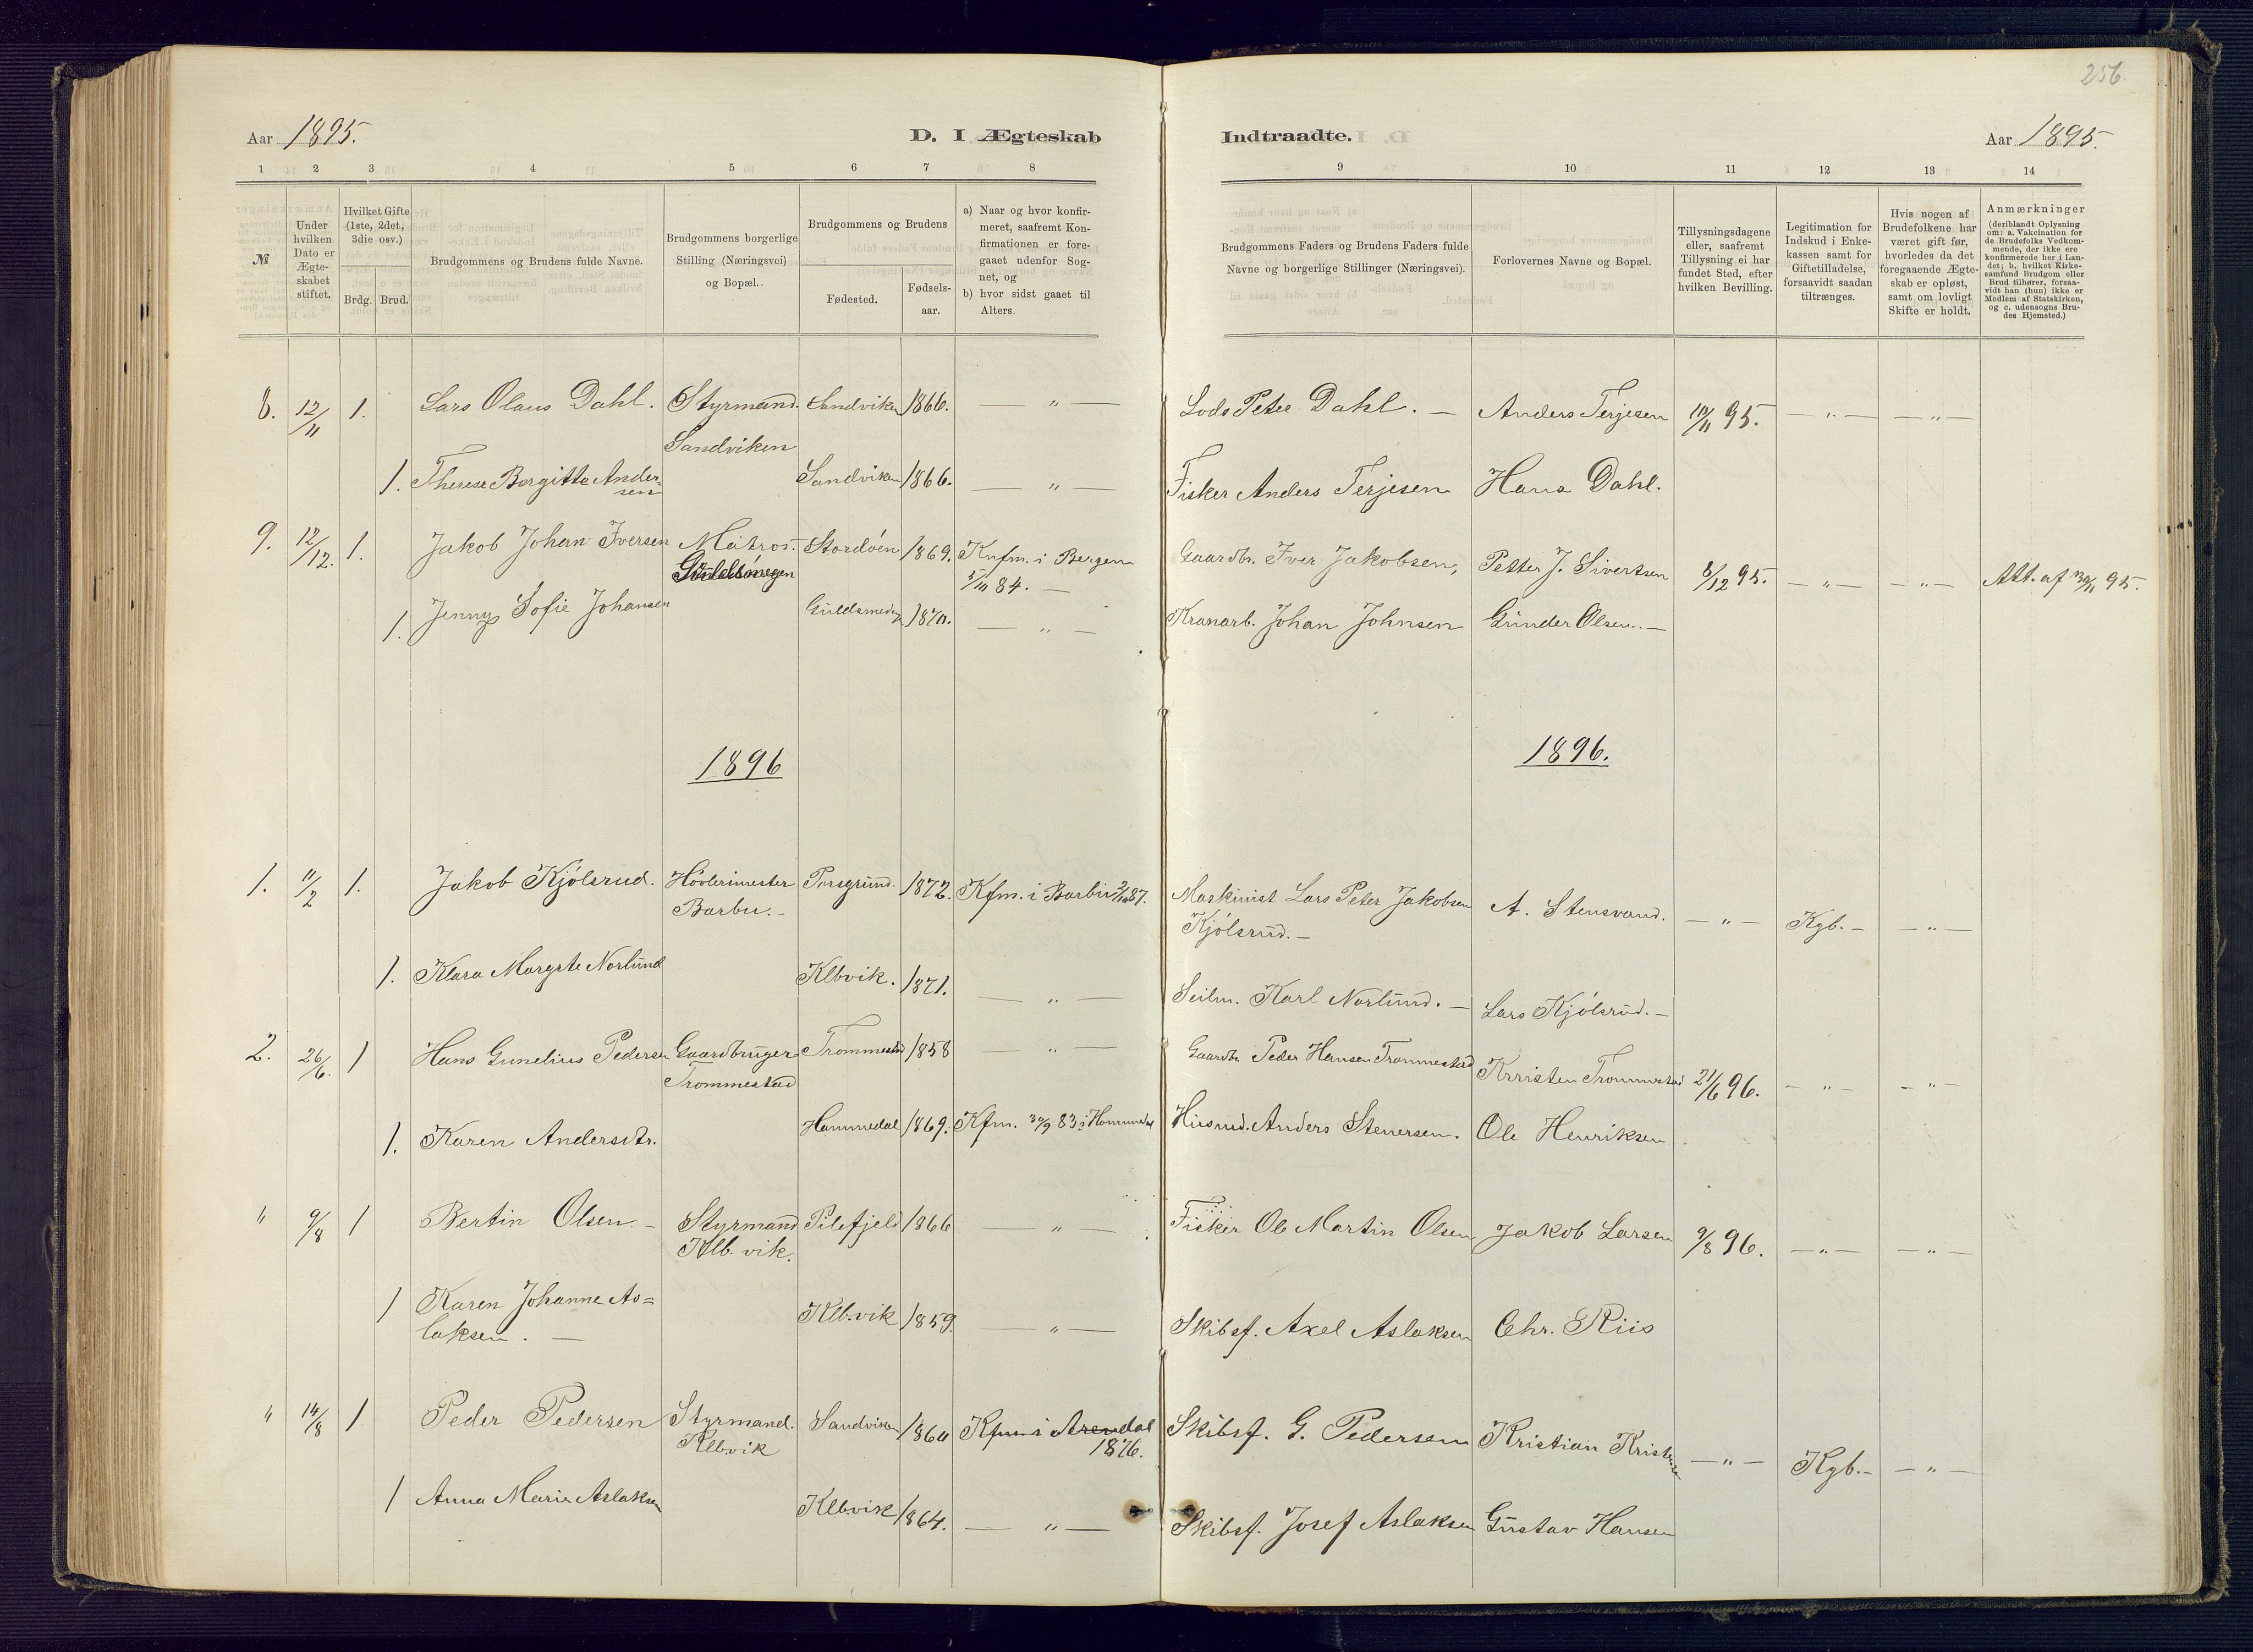 256.
Aar 1895.
D. I Ægteskab
Indtraadte.
Aar 1895.
1 2 3 4 5 6 7 8
9 10 11 12 13 14
№
Under hvilken Dato er Ægte-skabet stiftet.
Hvilket Gifte (1ste, 2det, 3die osv.)
Brdg. Brud.
Brudgommens og Brudens fulde Navne.
Brudgommens borgerlige Stilling (Næringsvei) og Bopæl.
Brudgommens og Brudens
Fødested.
Fødsels-aar.
a) Naar og hvor konfir-meret, saafremt Kon-firmationen er fore-gaaet udenfor Sog-net, og
b) hvor sidst gaaet til Alters.
Brudgommens Faders og Brudens Faders fulde Navne og borgerlige Stillinger (Næringsvei).
Forlovernes Navne og Bopæl.
Tillysningsdagene eller, saafremt Tillysning ei har fundet Sted, efter hvilken Bevilling.
Legitimation for Indskud i Enke-kassen samt for Giftetilladelse, forsaavidt saadan tiltrænges.
Hvis nogen af Brudefolkene har været gift før, hvorledes da det foregaaende Ægte-skab er opløst, samt om lovligt Skifte er holdt.
Anmærkninger (deriblandt Oplysning om: a. Vakcination for de Brudefolks Vedkom-mende, der ikke ere konfirmerede her i Lan-det; b, hvilket Kirke-samfund Brudgom eller Brud tilhører, forsaa-vidt han (hun) ikke er Medlem af Statskirken, og c. udensogns Bru-des Hjemsted.)
8. 12/11 1. Lars Olaus Dahl. Styrmand. Sandviken 1866. — " — Lods Peter Dahl. — Anders Terjesen 10/11 95. — " — — " —
Sandviken
1. Therese Borgitte Ander-
sen Sandviken 1866. — " — Fisker Anders Terjesen Hans Dahl.
9. 12/12. 1. Jakob Johan Iversen Matros. Stordöen 1869. Knfm. i Bergen Gaardbr. Iver Jakobsen, Petter J. Sivertsen 8/12 95. — " — — " — Att. af 30/11 95.
5/10 84. —
1. Jenny Sofie Johansen Guldsmeden 1870. — " — Kranarb. Johan Johnsen Gunder Olsen. —
1896
1896.
1. 11/2 1. Jakob Kjölsrud. Hövlerimester Porsgrund. 1872. Kfm. i Barbu 2/10 87. Maskinist Lars Peter Jakobsen A. Stensvand. — " — Kgb. — — " —
Barbu. — Kjölsrud. —
1. Klara Margrte Norlund Klbvik. 1871. — " — Seilm. Karl Norlund. — Lars Kjölsrud. —
2. 26/6. 1 Hans Gunelius Pedersen Gaardbruger Trommestad 1858 — " — Gaardbr. Peder Hansen Trommestad Kristen Trommestad 21/6 96. — " — — " —
Trommestad
1. Karen Andersdtr. Hommedal 1869. Kfm. 30/9 83 i Hommedal Husmd. Anders Stenersen. Ole Henriksen
" 9/8 1 Bertin Olsen. — Styrmand Pilefjeld 1866 — " — Fisker Ole Martin Olsen Jakob Larsen 9/8 96. — " — — " —
Klb. vik.
1 Karen Johanne As=
laksen. — Klb.vik 1859. — " — Skibsf. Axel Aslaksen Chr. Riis
" 14/8 1 Peder Pedersen Styrmand. Sandviken 1860 Kfm. i Arendal Skibsf. G. Pedersen Kristian Kristensen — " — Kgb. — — " —
Klb.vik 1876.
1 Anna Marie Aslaksen Klb.vik 1864. — " — Skibsf. Josef Aslaksen Gustav Hansen